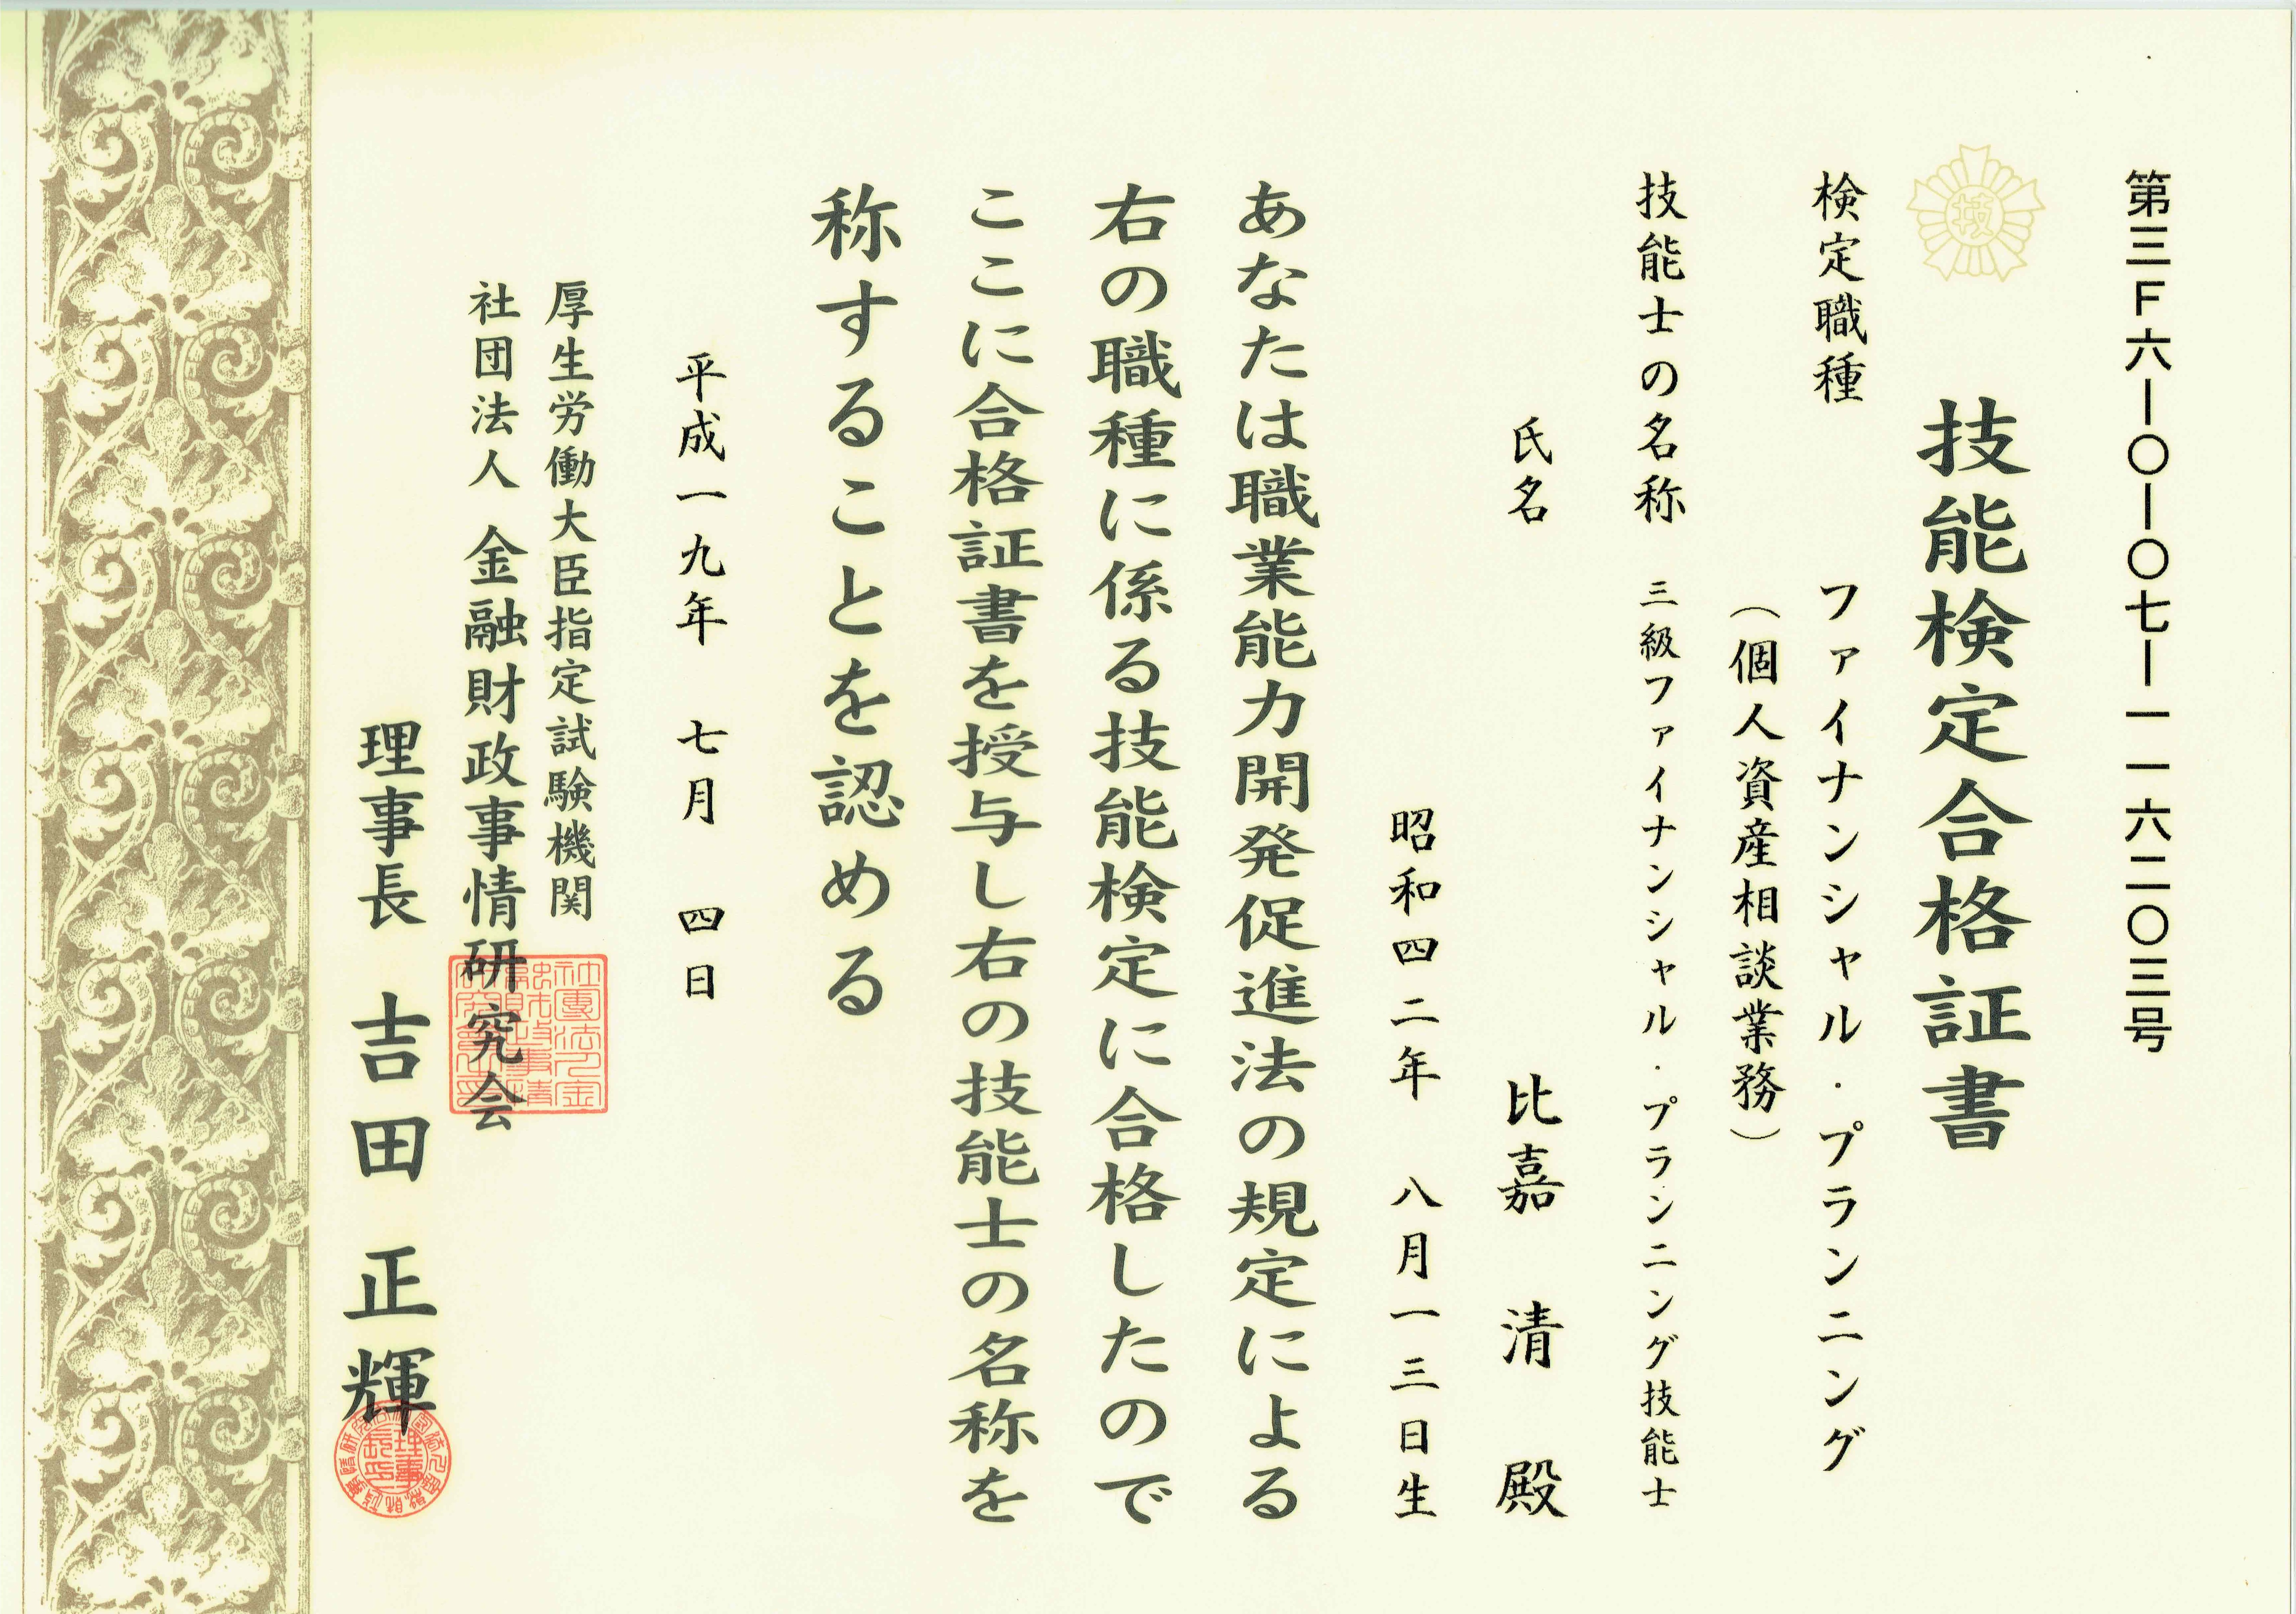 第三F六ー〇ー〇七ー一一六二〇三号
技
技能検定合格証書
検定職種 ファイナンシャル・プランニング
（個人資産相談業務）
技能士の名称 三級ファイナンシャル・プランニング技能士
氏名 比嘉 清 殿
昭和四二年 八月一三日生
あなたは職業能力開発促進法の規定による
右の職種に係る技能検定に合格したので
ここに合格証書を授与し右の技能士の名称を
称することを認める
平成一九年 七月 四日
厚生労働大臣指定試験機関
社団法人 金融財政事情研究会
理事長 吉田 正輝